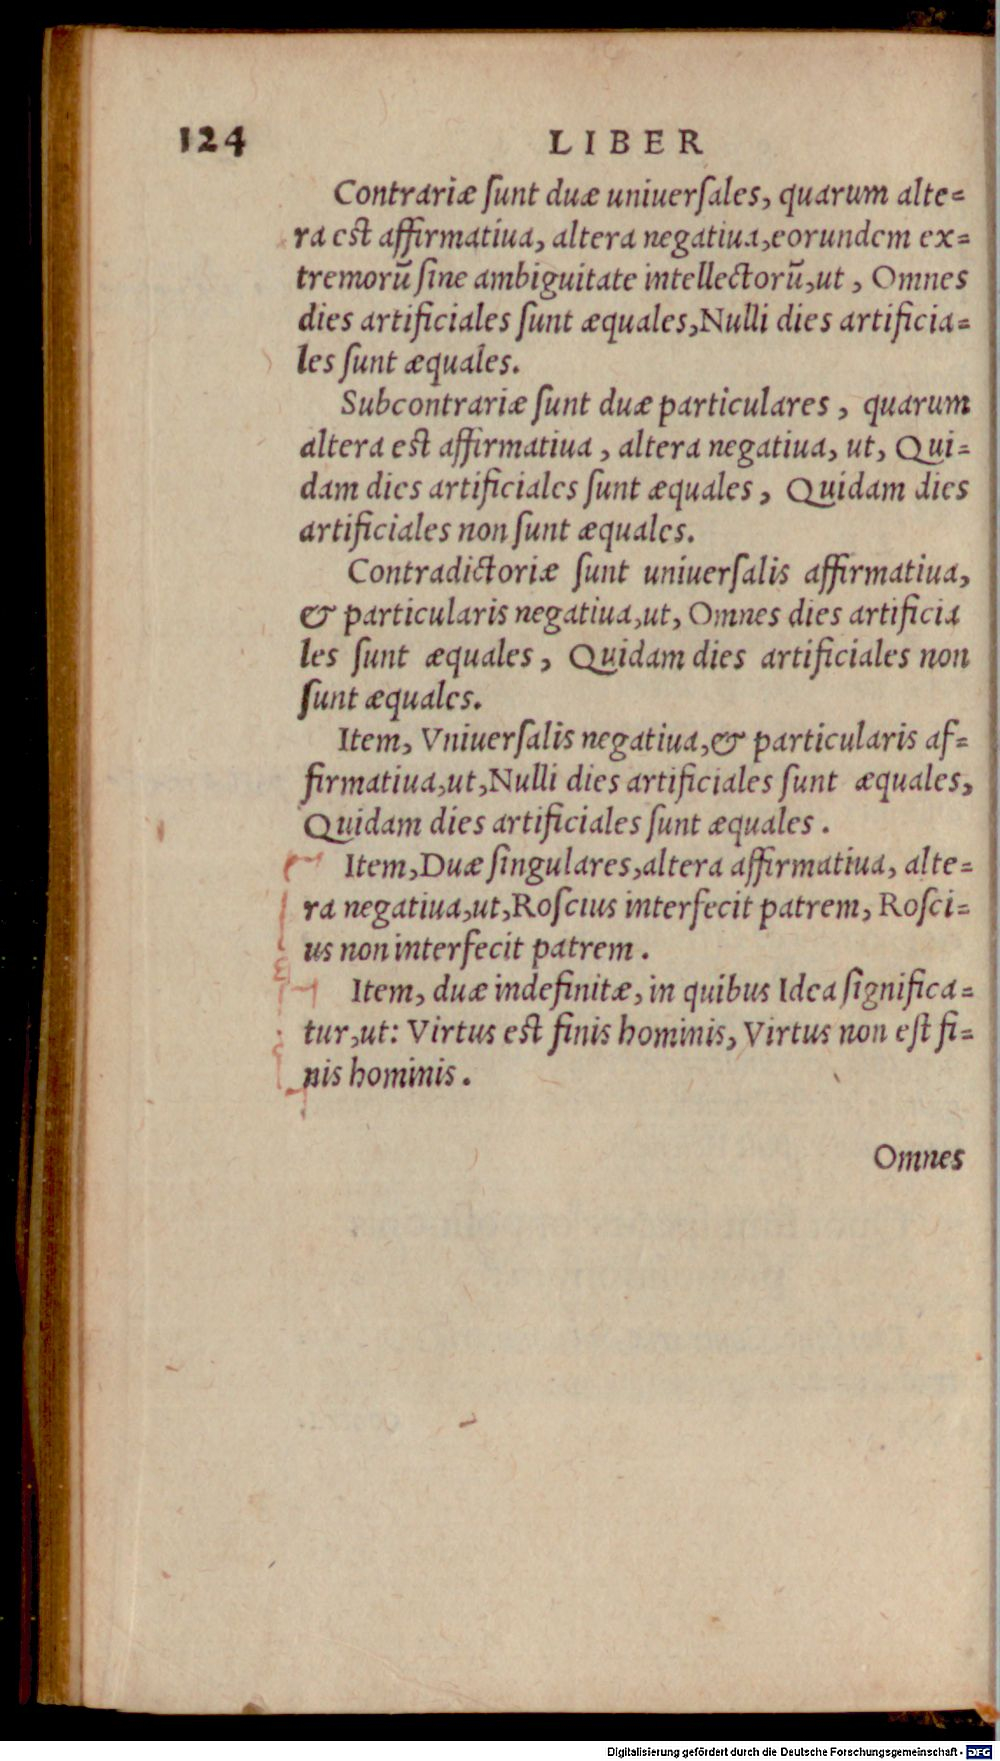 124 LIBER
Contrariæ ſunt duæ uniuerſales, quarum alte=
ra eſt affirmatiua, altera negatiua, eorundem ex=
tremorũ ſine ambiguitate intellectorũ, ut, Omnes
dies artificiales ſunt æquales, Nulli dies artificia=
les ſunt æquales.
Subcontrariæ ſunt duæ particulares, quarum
altera eſt affirmatiua, altera negatiua, ut, Qui=
dam dies artificiales ſunt æquales, Quidam dies
artificiales non ſunt æquales.
Contradictoriæ ſunt uniuerſalis affirmatiua,
& particularis negatiua, ut, Omnes dies artificia
les ſunt æquales, Quidam dies artificiales non
ſunt æquales.
Item, Vniuerſalis negatiua, & particularis af=
firmatiua, ut, Nulli dies artificiales ſunt æquales,
Quidam dies artificiales ſunt æquales.
Item, Duæ ſingulares, altera affirmatiua, alte=
ra negatiua, ut, Roſcius interfecit patrem, Roſci=
us non interfecit patrem.
Item, duæ indefinitæ, in quibus Idea ſignifica=
tur, ut: Virtus eſt finis hominis, Virtus non eſt fi=
nis hominis.
Omnes
Digitalisierung gefördert durch die Deutsche Forschungsgemeinschaft - DFG